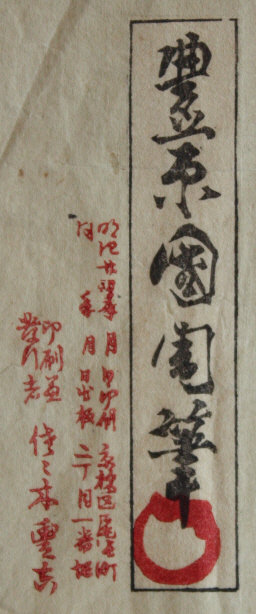 豊原國周筆
明治廿 年 月 日印刷 京橋区尾張町
同 年 月 日出版 二丁目一番地
印刷兼
発行者 佐々木豊吉